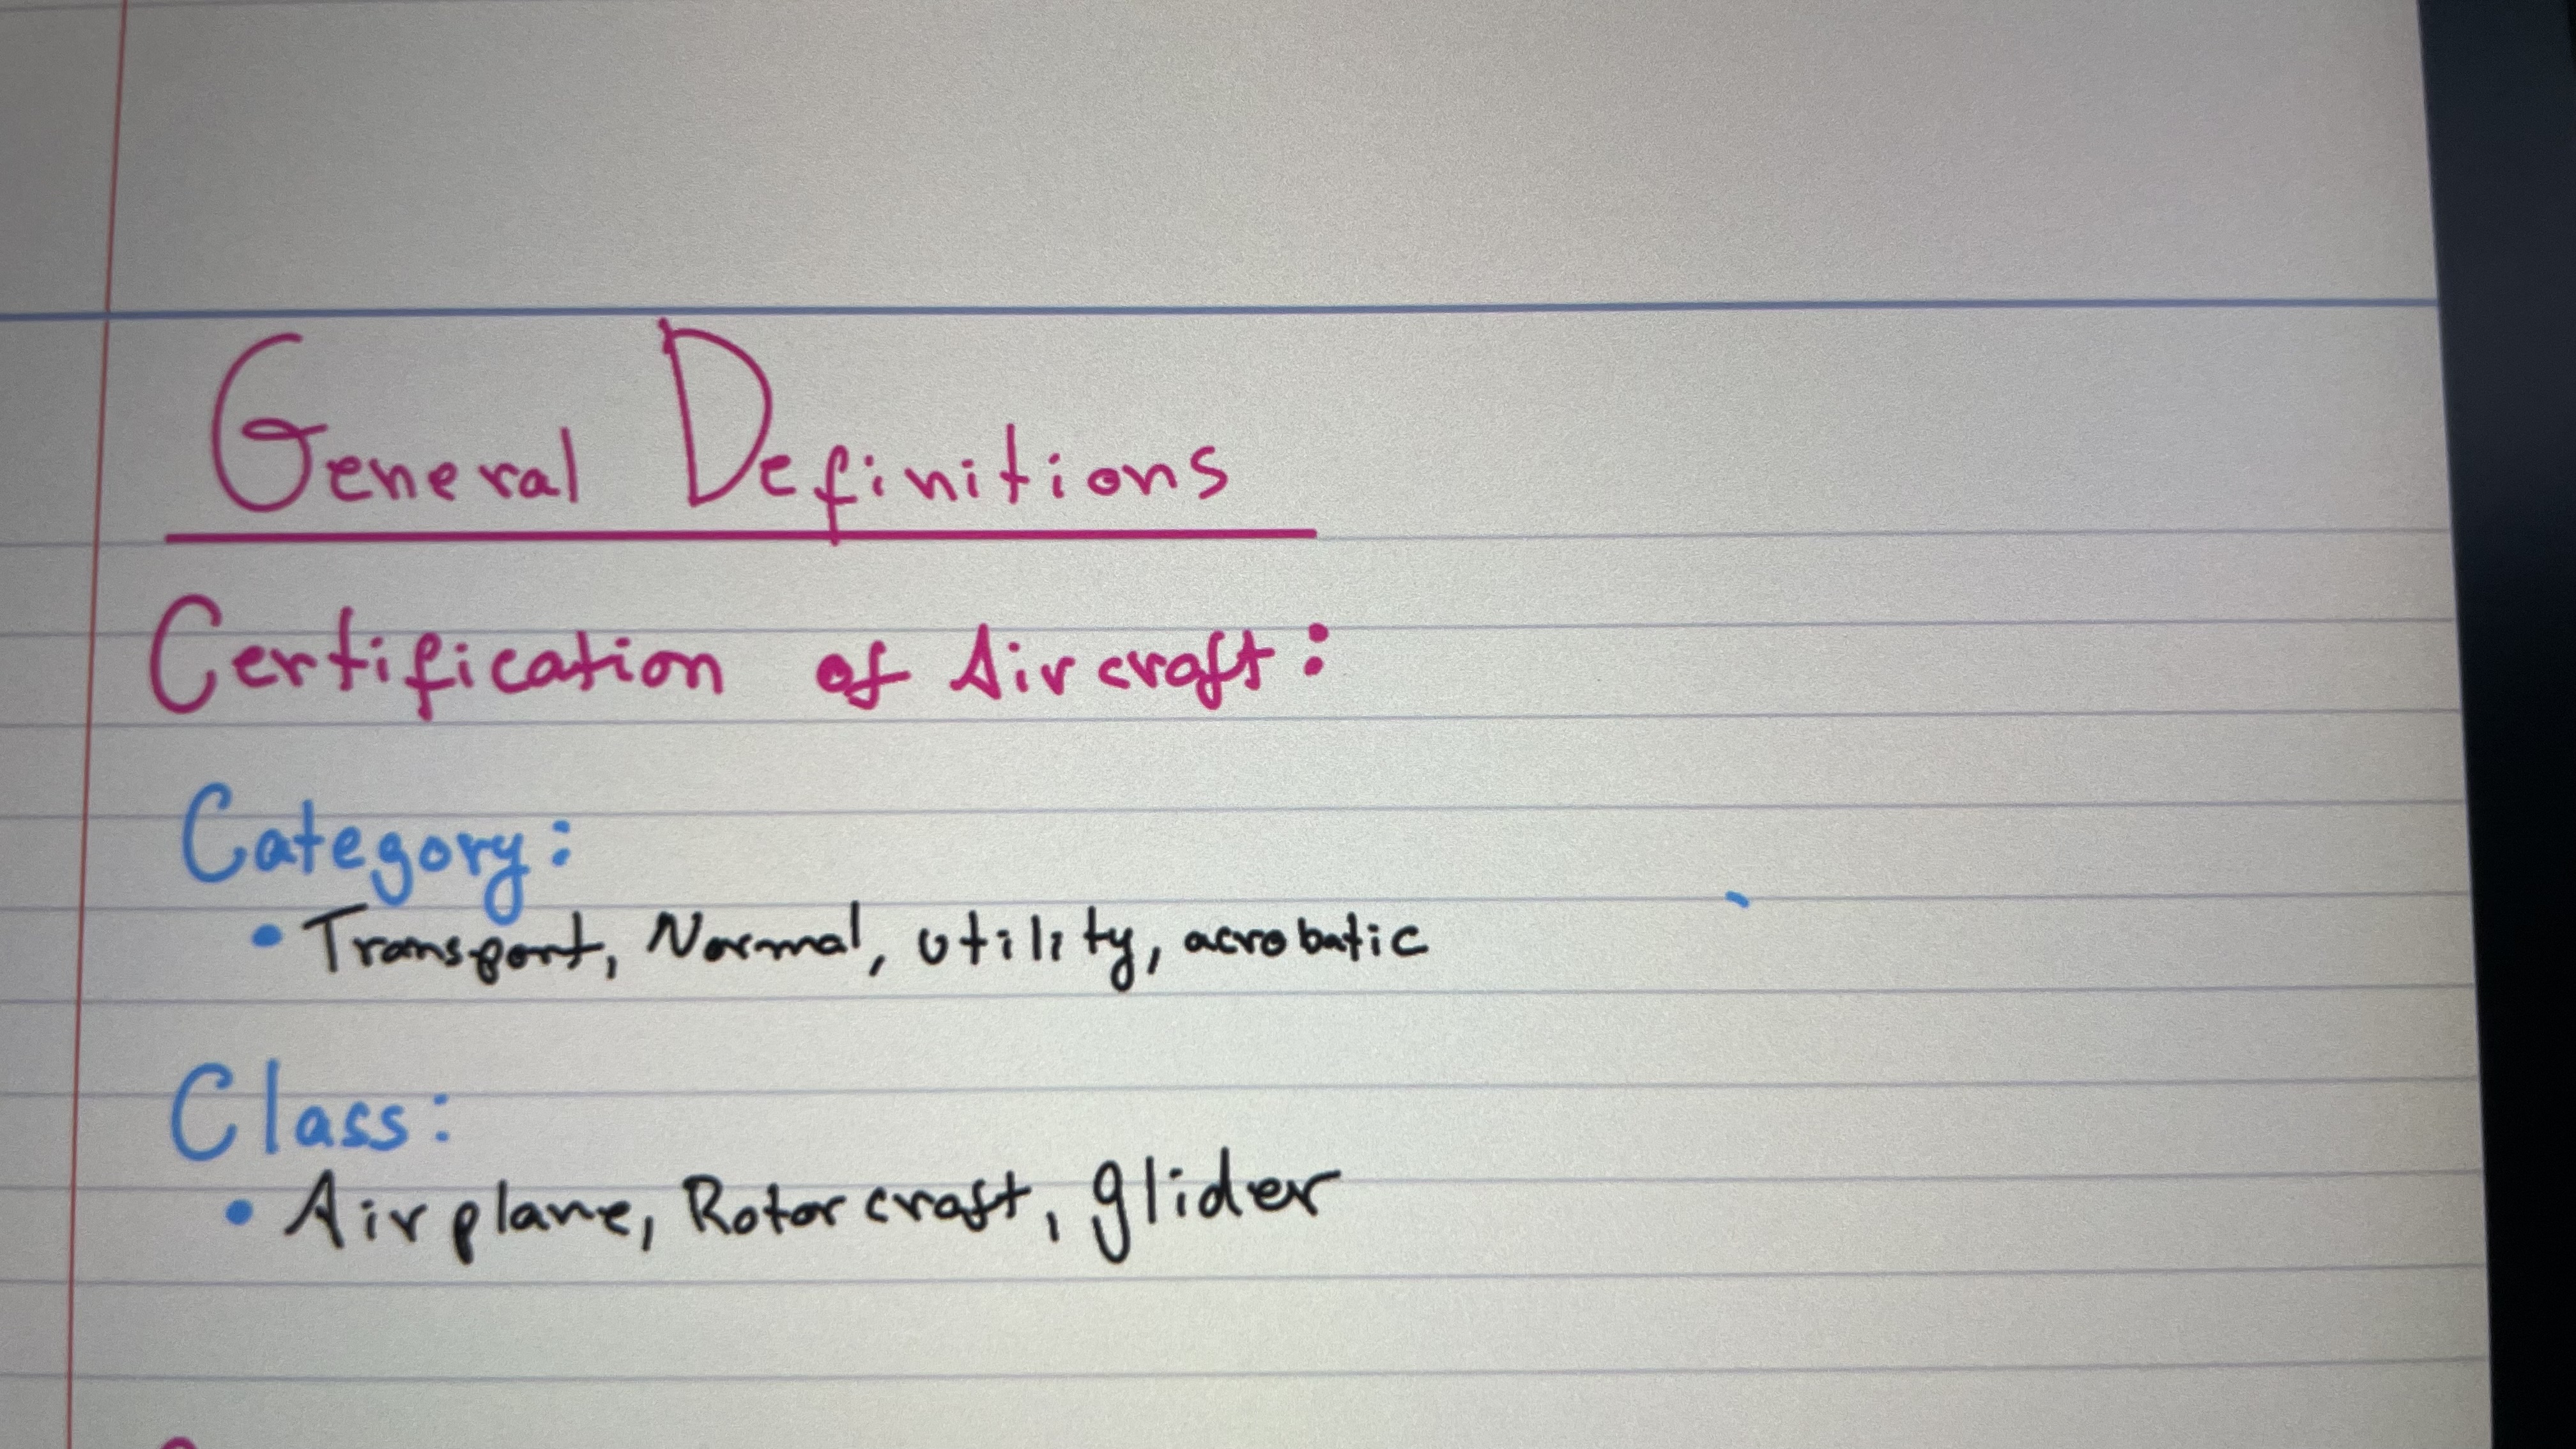 General Definitions
Certification of Aircraft:
Category:
• Transport, Normal, utility, acrobatic
Class:
• Airplane, Rotorcraft, glider